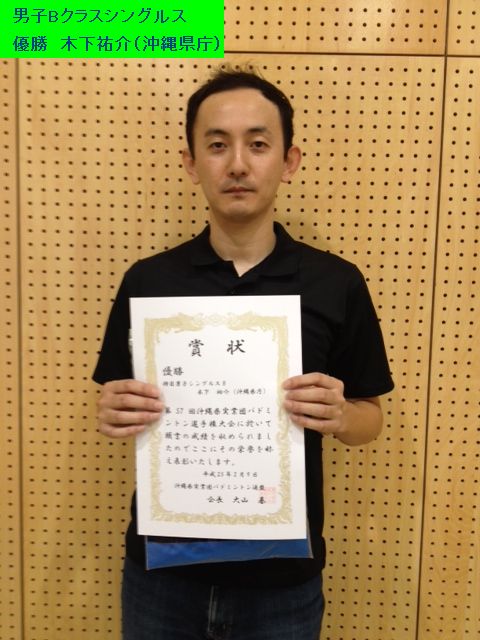 男子Bクラスシングルス
優勝 木下祐介(沖縄県庁)
賞状
優勝
木下 祐介 (沖縄県庁)
第57回沖縄県実業団バドミ
ントン選手権大会に於いて
頭書の成績を収められまし
たのでここにその栄誉を称
え表彰いたします。
平成25年2月9日
沖縄県実業団バドミントン連盟
会長 大山